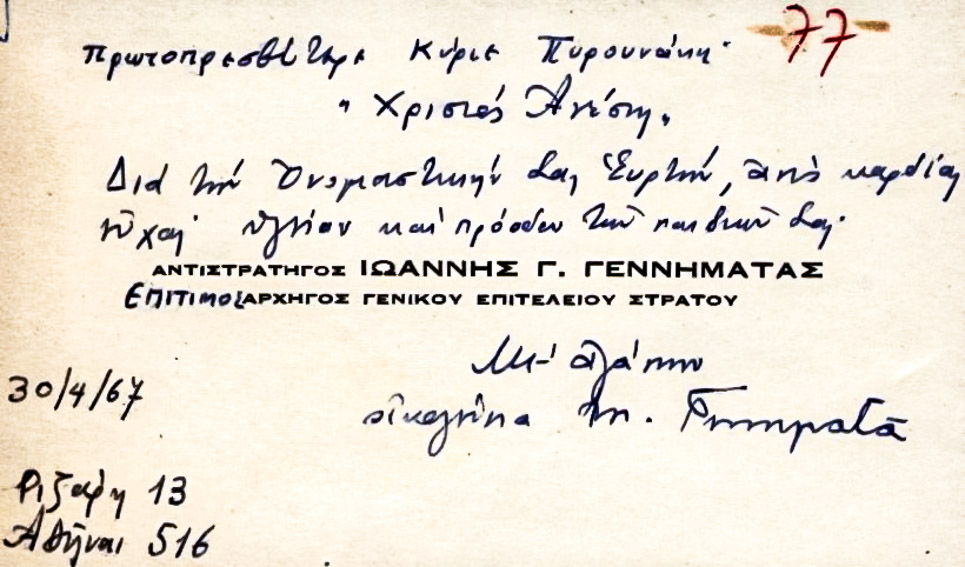 77
Πρωτοπρεσβύτερε Κύριε Πυρουνάκη.
"Χριστός Ἀνέστη"
Διά τήν Ὀνομαστικήν Σας Ἑορτήν, ἀπό καρδίας
εὐχαί ὑγείαν καί πρόοδον τῶν παιδιῶν Σας.
ΑΝΤΙΣΤΡΑΤΗΓΟΣ ΙΩΑΝΝΗΣ Γ. ΓΕΝΝΗΜΑΤΑΣ
ΕΠΙΤΙΜΟΣ ΑΡΧΗΓΟΣ ΓΕΝΙΚΟΥ ΕΠΙΤΕΛΕΙΟΥ ΣΤΡΑΤΟΥ
Μέ ἀγάπην
οἰκογένεια Γεννηματᾶ
30/4/67
Ριζάρη 13
Ἀθῆναι 516